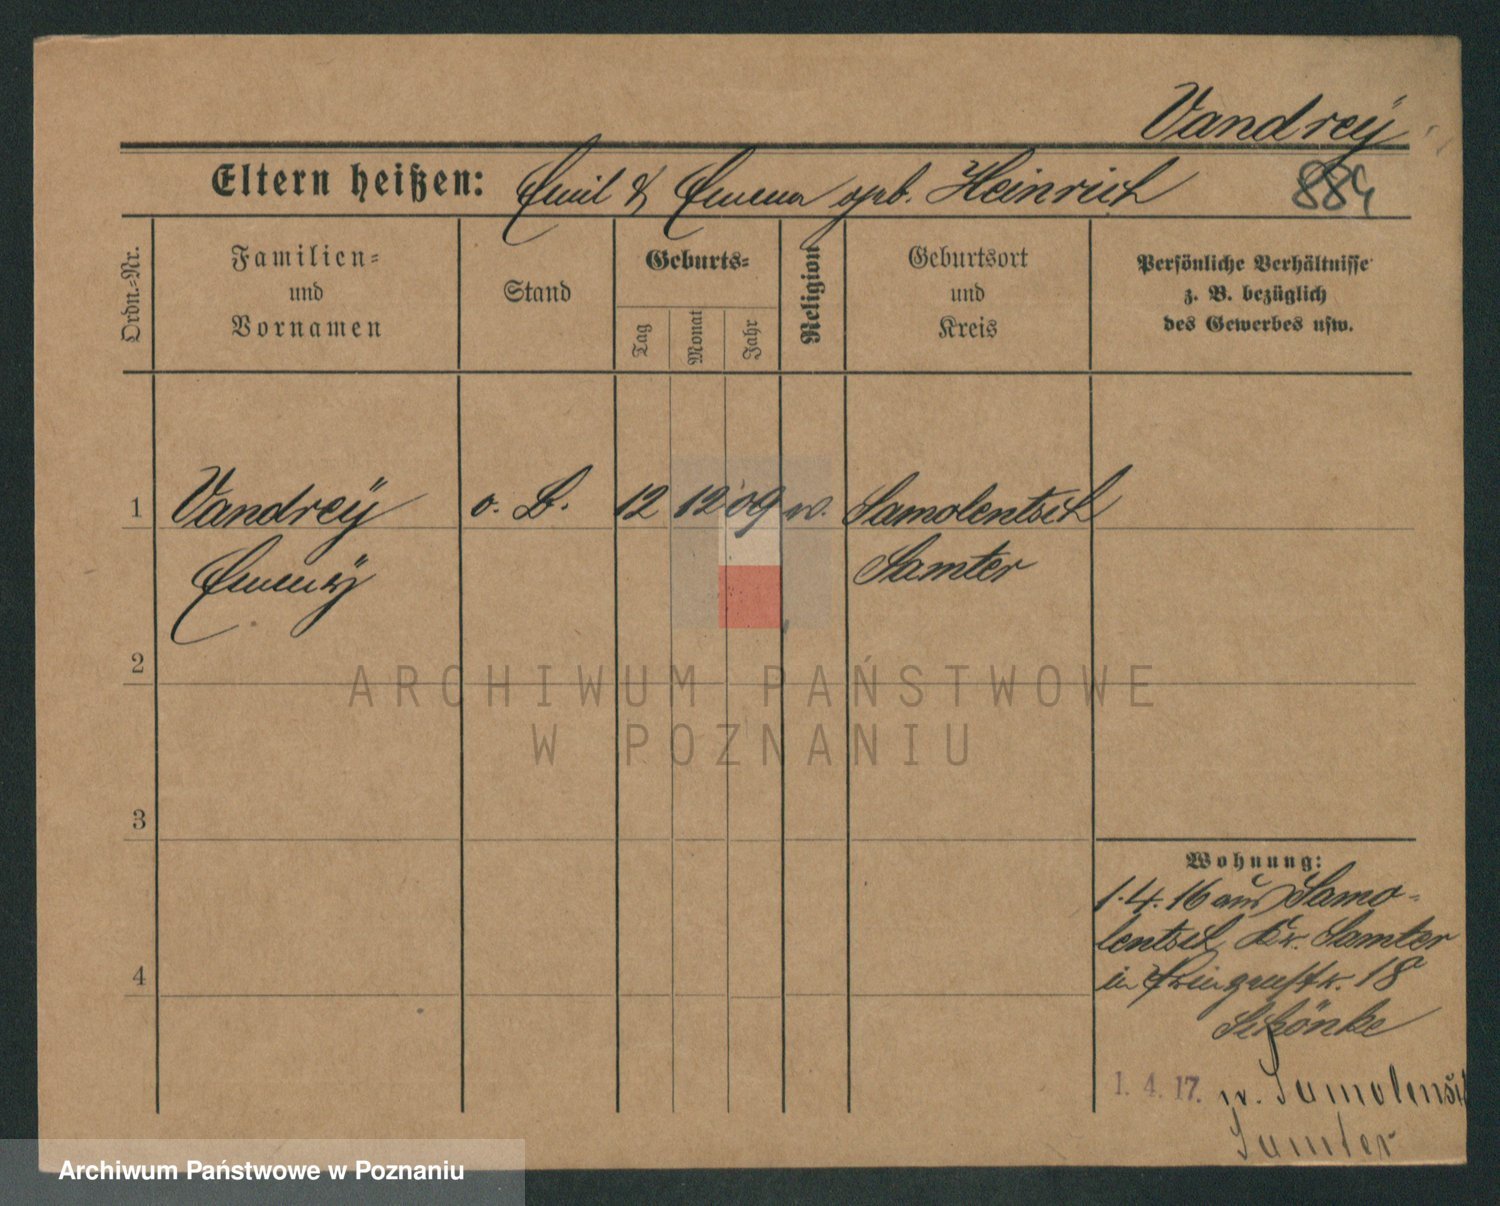 Vandreÿ
Eltern heißen: Emil & Emma geb. Heinrich 884
Ordn.-Nr.
Familien-
und
Vornamen
Stand
Geburts-
Tag
Monat
Jahr
Religion
Geburtsort
und
Kreis
Persönliche Verhältnisse
z. B. bezüglich
des Gewerbes usw.
1 Vandreÿ o. B. 12 12 09 w. Samolentsch
Emmÿ Samter
2
3
4
Wohnung:
1.4.16 aus Samo-
lentsch Kr. Samter
in 18
Schönke
1. 4. 17. n. Samolensch
Samter
ARCHIWUM PAŃSTWOWE
W POZNANIU
Archiwum Państwowe w Poznaniu